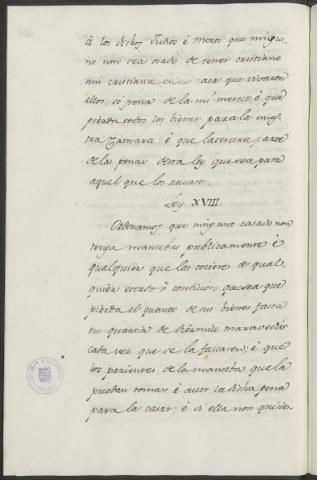 à los dichos Judios è moros que ningu-
no non sea osado de tener cristiano
nin cristiana en su casa que vivan con
ellos; só pena de la mi merced è que
pierda todos los bienes para la nues-
tra Camara: è que la tercera parte
de las penas desta ley que sea para
aquel que los acusare.
Ley XVIII.
Ordenamos que ningunt casado non
tenga manceba publicamente è
qualquier que las toviere de qual-
quier estado ò condicion que sea que
pierda el quinto de sus bienes fasta
en quantia de diezmill maravedis
cada vez que se la fallaren; è que
los parientes de la manceba que la
puedan tomar è aver la dicha pena
para la casar; è si ella non quisie-